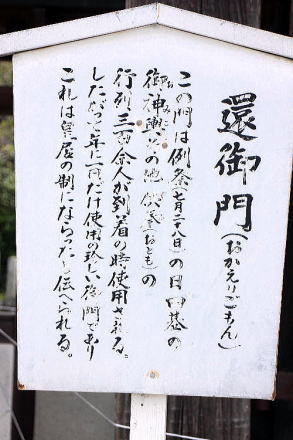 還御門(おかえりごもん)
この門は例祭(七月二十八日)の日田基の
御神輿、その他供奉(おとも)の
行列三百余人が到着の時使用される。
したがって年に一度だけ使用の珍しい後門であり
これは皇居の制にならったと伝へられる。